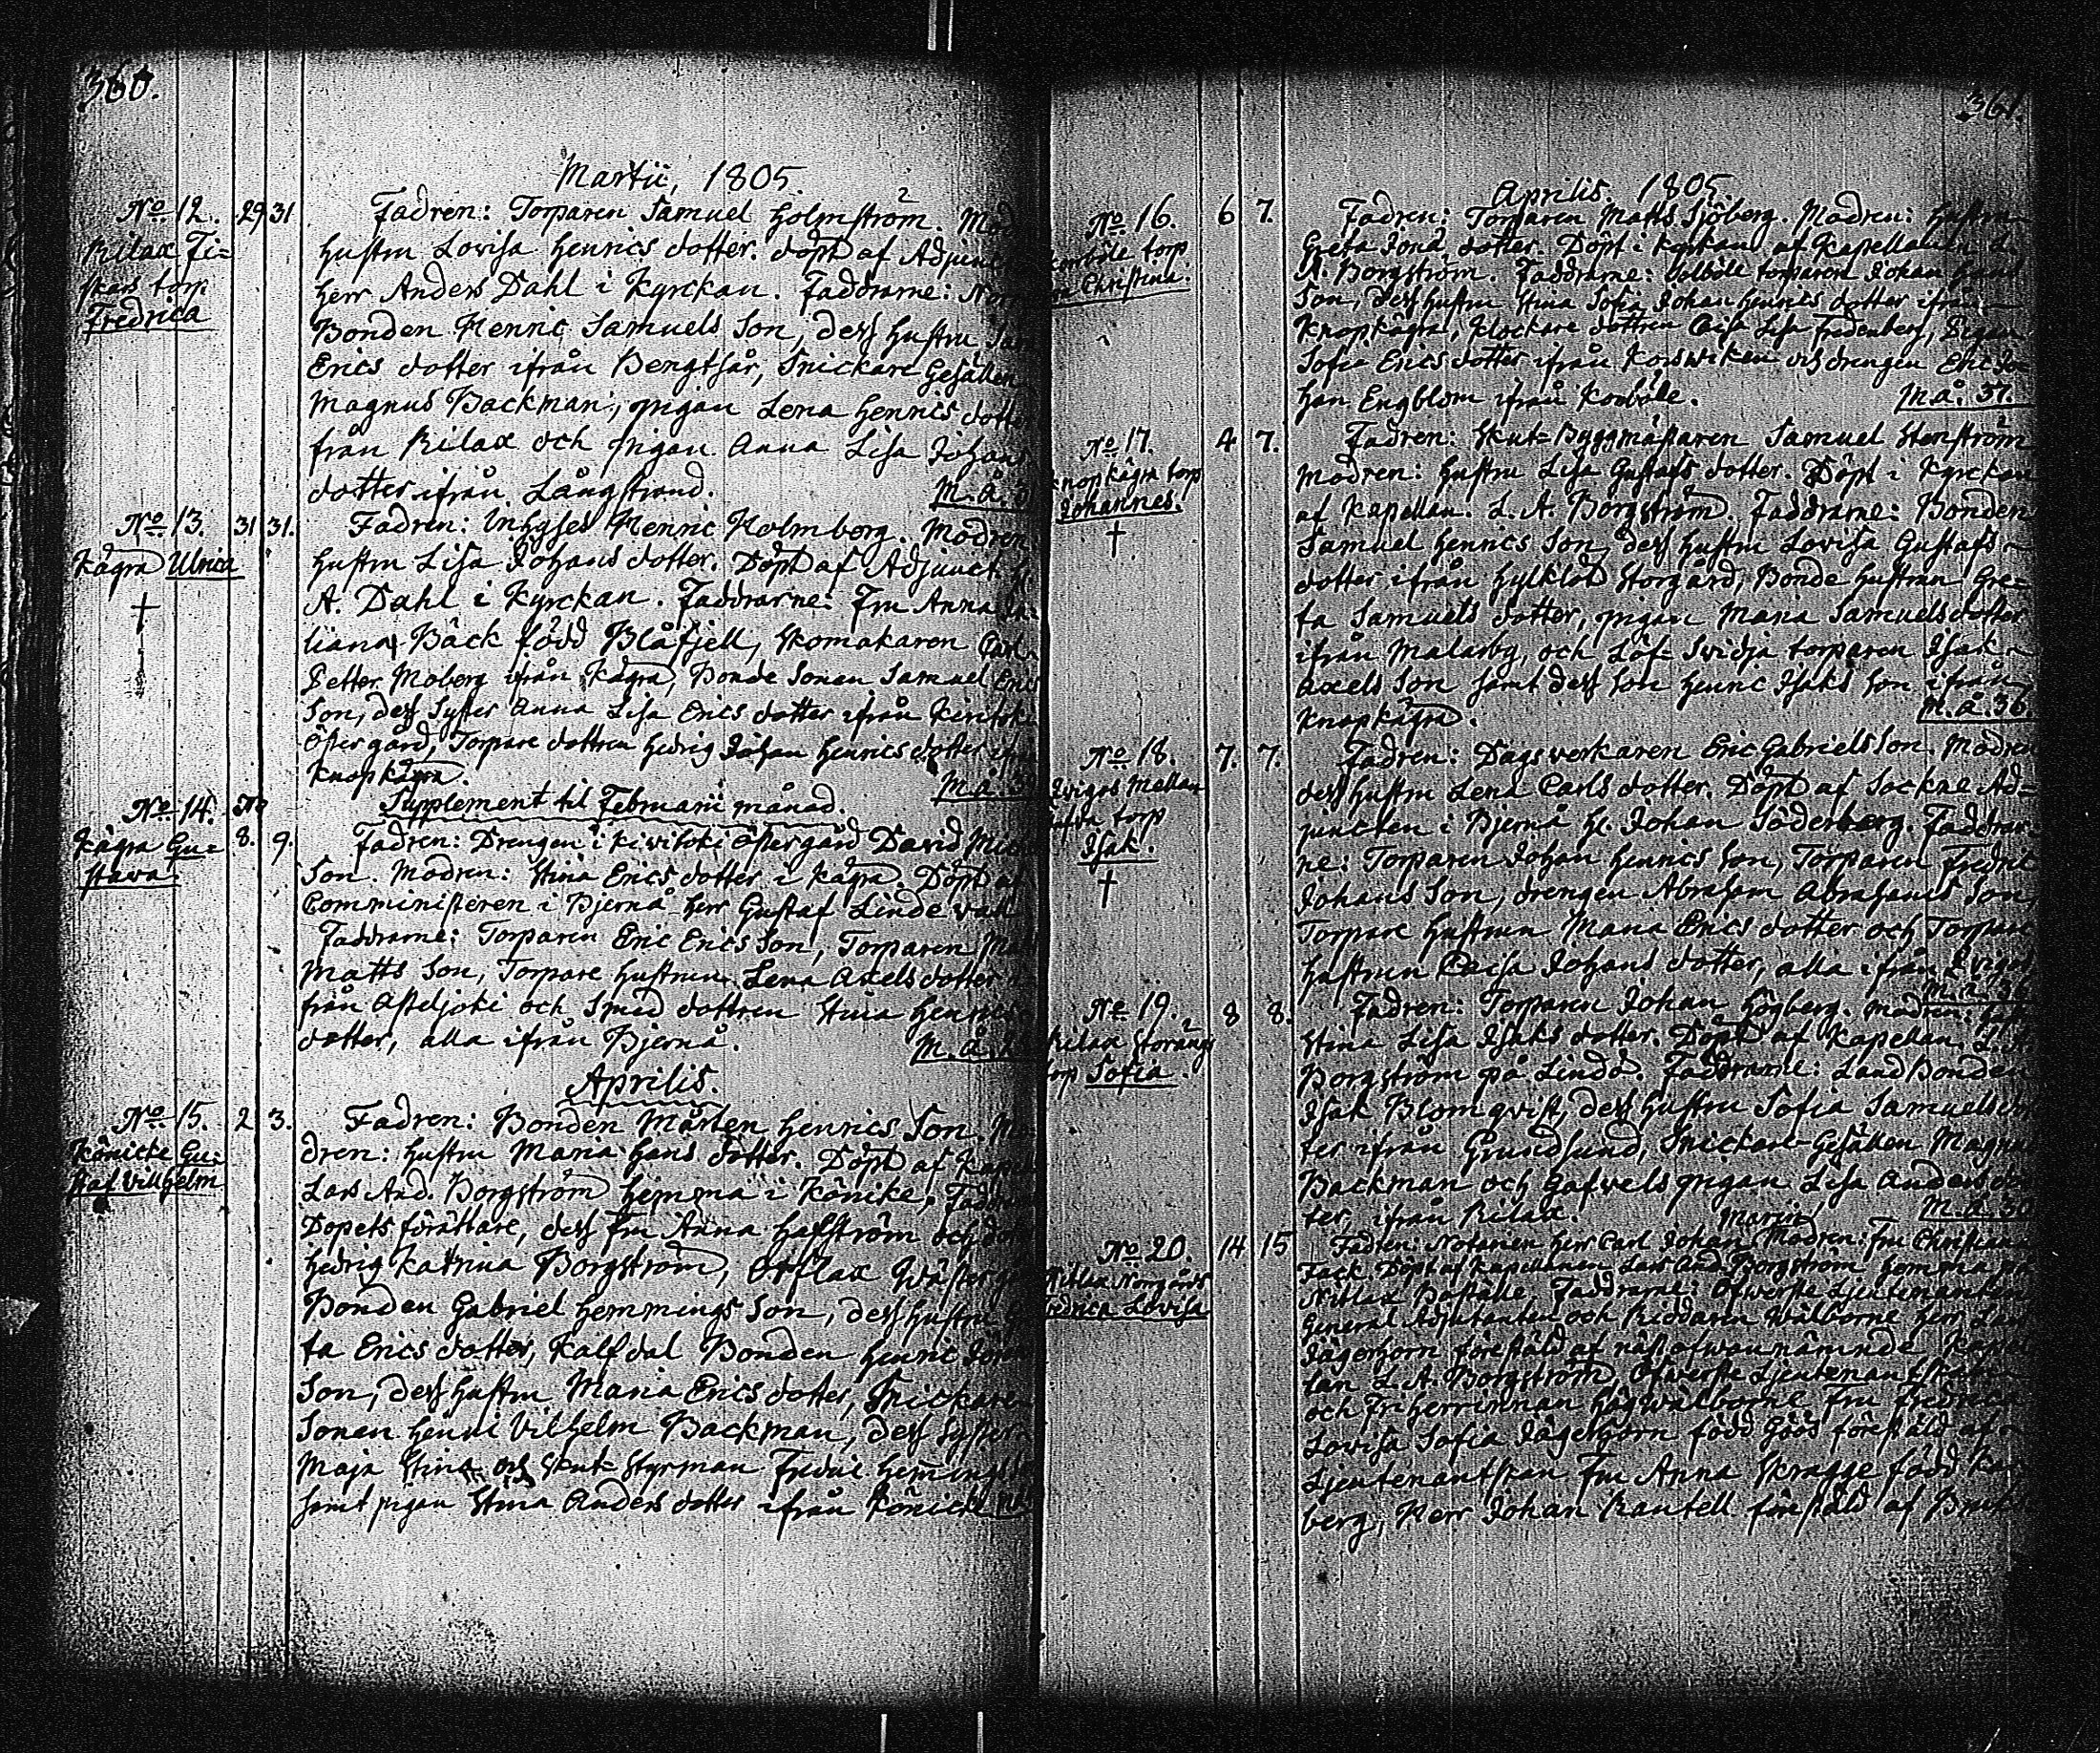 360.
Martii, 1805.
No. 12. 29 31. Fadren: Torparen Samuel Holmström. Mod
Rilax Fi=
skars torp
Fredrica
hustru Lovisa Henrics dotter. döpt af Adjunc
Herr Anders Dahl i Kyrckan. Faddrarne:
Bonden Henric Samuels Son, dess hustru
Erics dotter ifrån Bengtsår, Snickare Gesällen
Magnus Backman, pigan Lena Henrics dotter
från Rilax och pigan Anna Lisa Johans
dotter ifrån Långstrand. M. å.
No. 13. 31 31. Fadren: Inhyses Henric Holmberg. Modren
Kågra Ulrica
†
hustru Lisa Johans dotter. Döpt af Adjunct. H.
A. Dahl i Kyrckan. Faddrarne: Fru Anna
liana Bäck född Blåfjell, Skomakaren Carl
Petter Moberg ifrån Kågra, Bonde Sonen Samuel Erics
Son, dess Syster Anna Lisa Erics dotter ifrån
Östergård, Torpare dottren Hedvig Johan Henrics dotter ifrån
Knopkägra. M. å. 3
Supplement til Februarii månad.
No. 14. 8. 9. Fadren: Drengen i Kiwitoki Östergård David Mic
Kågra Gu=
stava.
Son. Modren: Stina Erics dotter i Kågra. Döpt af
Comministeren i Bjernå Herr Gustaf Lindevall
Faddrarne: Torparen Eric Erics Son, Torparen
Matts Son, Torpare hustrun Lena Axels dotter
från Asteljoki och Smed dottren Stina Henrics
dotter, alla ifrån Bjernå. M. å.
Aprilis.
No. 15. 2. 3. Fadren: Bonden Mårten Henrics Son. Mo
Könicke Gu=
staf Vilhelm
dren: hustru Maria Hans dotter. Döpt af Kapell
Lars And. Borgström hemma i Könike, Faddrar
Dopets förrättare, dess Fru Anna Hafström och dot
Hedvig Katrina Borgström, Västergård
Bonden Gabriel Hemmings Son, dess hustru
ta Erics dotter, Kalfdal Bonden Henric
Son, dess hustru Maria Erics dotter, Snickare
Sonen Henric Vilhelm Backman, dess Syster
Maja Stina och Skut-Styrman Fredric Hemmings
samt pigan Stina Anders dotter ifrån Könicke
361.
Aprilis. 1805.
No. 16. 6 7. Fadren: Torparen Matts Sjöberg. Modren: hustru
böle torp
Christina.
Greta Jona dotter. Döpt i Kyrkan af Kapellanen L.
A. Borgström. Faddrarne: torparen Johan
Son, dess hustru Stina Sofia Johan Henrics dotter ifrån
Knopkägra, Klockare dottren Caisa Lisa Fredenberg, Pigan
Sofia Erics dotter ifrån Korswiken och drengen Eric Jo=
han Engblom ifrån Kosböle. M. å. 37.
No. 17. 4 7. Fadren: Skut-Byggmästaren Samuel Stenström
knopkägra torp
Johannes.
†
Modren: hustru Lisa Gustafs dotter. Döpt i Kyrckan
af Kapellan. L. A. Borgström. Faddrarne: Bonden
Samuel Henrics Son, dess hustru Lovisa Gustafs
dotter ifrån Hylklot Storgård, Bonde hustrun Gre=
ta Samuels dotter, pigan Maria Samuels dotter
ifrån Malarby, och Löf-Svidja torparen Isak
Axels Son samt dess Son Henric Isaks Son ifrån
Knopkägra. M. å. 36.
No. 18. 7. 7. Fadren: Dagsverkaren Eric Gabriels Son. Modren
Mellan
torp
Isak.
†
dess hustru Lena Carls dotter. Döpt af Sockne Ad=
juncten i Bjernå H. Johan Söderberg. Faddrar=
ne: Torparen Johan Henrics Son, Torparen Fredric
Johans Son, drengen Abraham Abrahams Son,
Torpare hustrun Maria Erics dotter och Torpare
hustrun Caisa Johans dotter, alla ifrån
M. å. 3
No. 19. 8 8. Fadren: Torparen Johan Högberg. modren:
Rilax Storängs
torp Sofia.
Stina Lisa Isaks dotter. Döpt af Kapellan. L. A.
Borgström på Lindö. Faddrarne: Land Bonden
Isak Blomqvist, dess hustru Sofia Samuels dot
ter ifrån Grundsund, Snickare-Gesällen Magnus
Backman och Gafvels pigan Lisa Anders dot
ter, ifrån Rilax. M. å. 30
No. 20. 14 15 Fadren: Notarien Herr Carl Johan Martin, Modren: Fru Christiana
Nitlax Norrgård
Fredrica Lovisa
Fack. Döpt af Kapellanen Lars And. Borgström hemma på
Nitlax Boställe. Faddrarne: Öfwerste Ljeutenanten
General Adjutanten och Riddaren Wälborne Herr
Jägerhorn föreståld af näst ofwannämnde Kapel
lan L. A. Borgström, Öfwerste Ljeutenantskan
och Friherrinnan Högwälborne Fru Fredrica
Lovisa Sofia Jägerhorn född Göös föreståld af
Ljeutenantskan Fru Anna Skragge född
berg, Herr Johan Rantell föreståld af Bruk